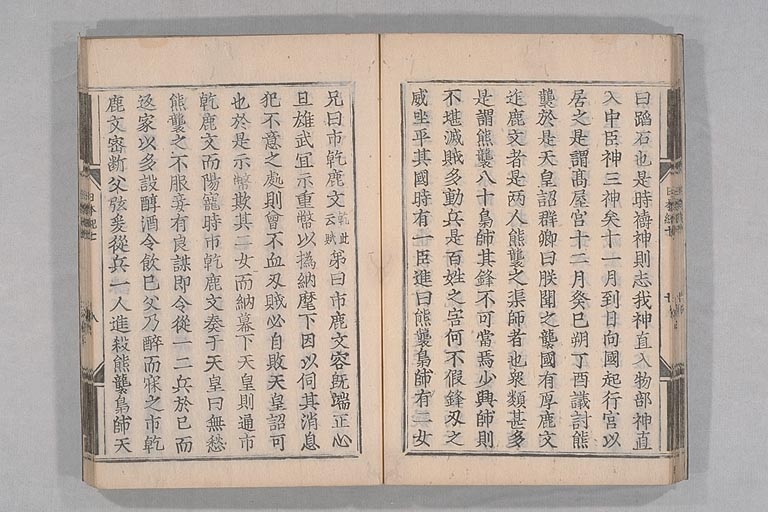 曰蹈石也是時禱神則志我神直入物部神直
入中臣神三神矣十一月到日向國起行宮以
居之是謂髙屋宮十二月癸巳朔丁酉議討熊
襲於是天皇詔群卿曰朕聞之襲國有厚鹿文
迮鹿文者是兩人熊襲之渠師者也衆類甚多
是謂熊襲八十梟師其鋒不可當焉少興師則
不堪滅賊多動兵是百姓之害何不假鋒刃之
威坐平其國時有一臣進曰熊襲梟師有二女
兄曰市乾鹿文乾此云賦弟曰市鹿文容既端正心
且雄武宜示重幣以撝納麾下因以伺其消息
犯不意之處則會不血刃賊必自敗天皇詔可
也於是示幣欺其二女而納幕下天皇則通市
乾鹿文而陽寵時市乾鹿文奏于天皇曰無愁
熊襲之不服妾有良謀即令從一二兵於已而
返家以多設醇酒令飲己父乃醉而寐之市乾
鹿文密斷父弦爰從兵一人進殺熊襲梟師天